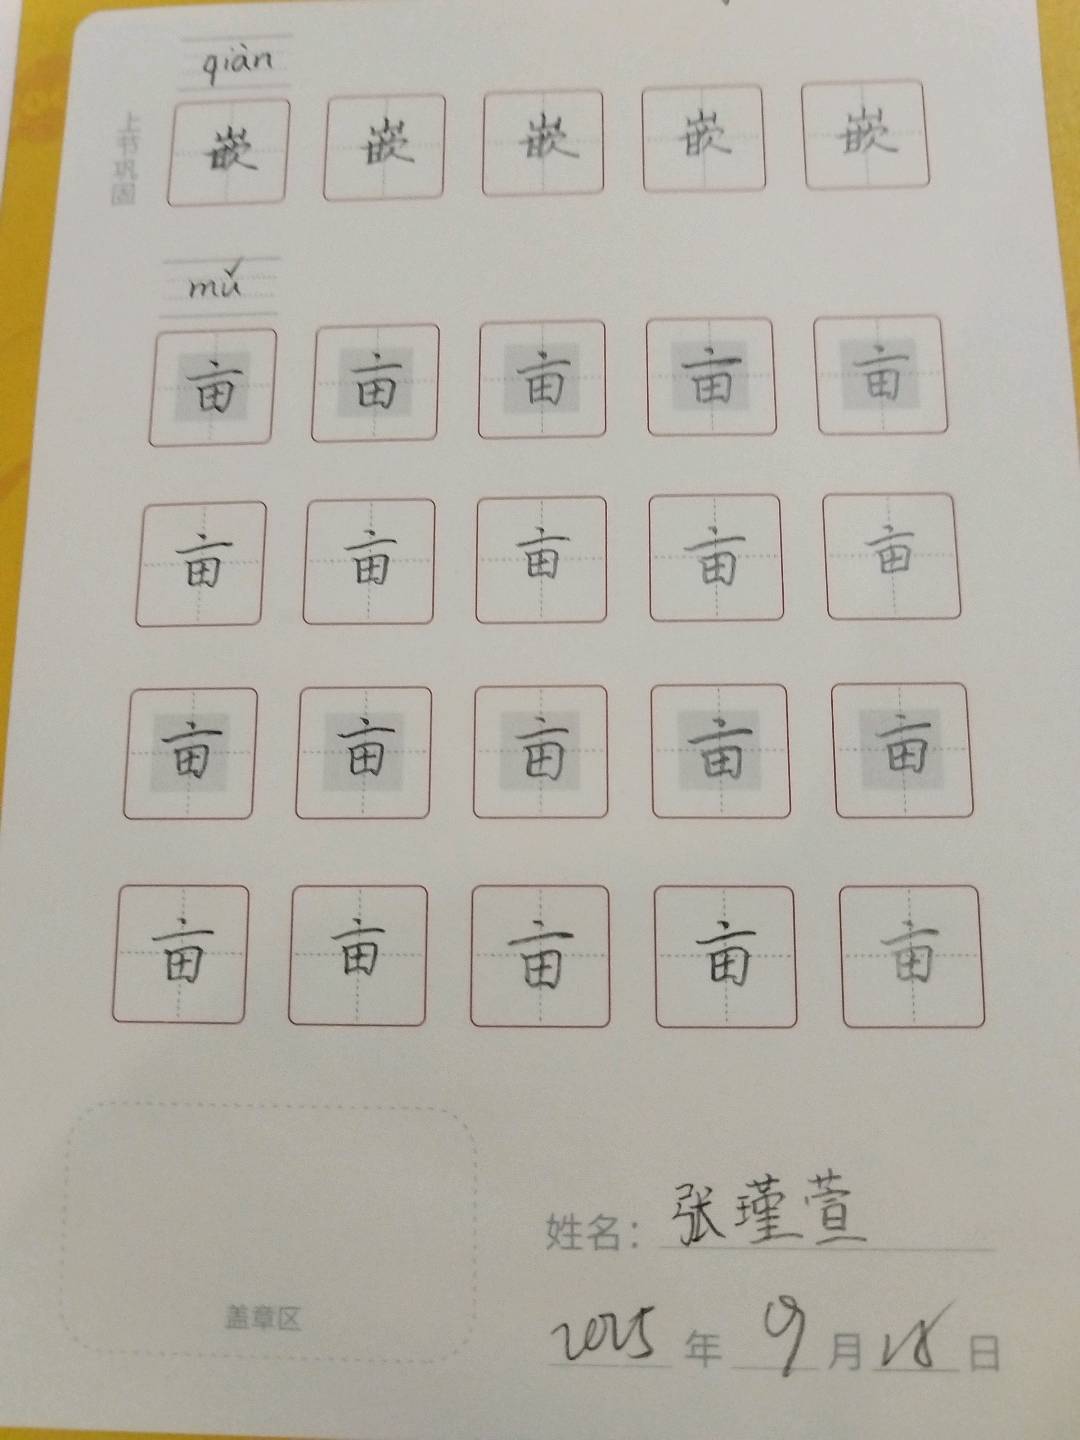 qiàn
上书巩固
嵌 嵌 嵌 嵌 嵌
mǔ
亩 亩 亩 亩 亩
亩 亩 亩 亩 亩
亩 亩 亩 亩 亩
亩 亩 亩 亩 亩
姓名：张瑾萱
盖章区
2025年9月28日